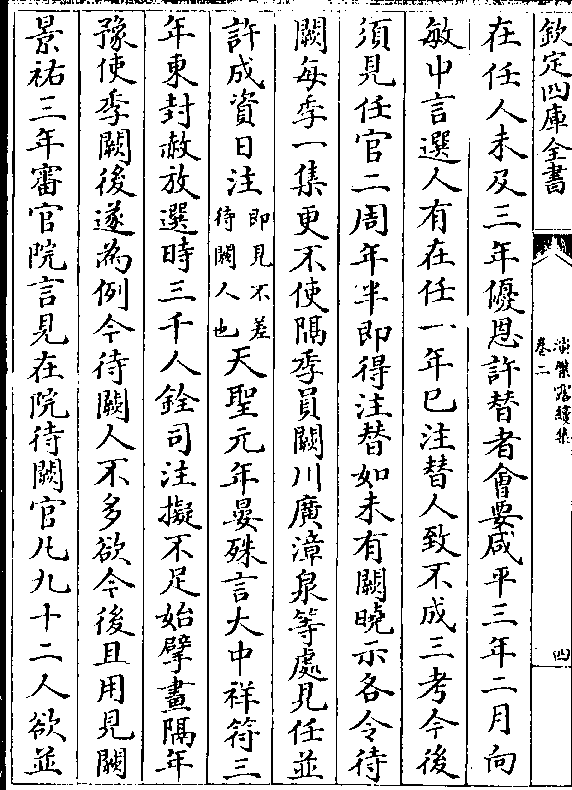 欽定四庫全書
演繁露續集
卷二
四
在任人未及三年優恩許替者會要咸平三年二月向
敏中言選人有在任一年巳注替人致不成三考今後
須見任官二周年半即得注替如未有闕曉示各令待
闕每季一集更不使隔季員闕川廣漳泉等處見任並
許成資日注即見不差待闕人也天聖元年晏殊言大中祥符三
年東封赦放選時三千人銓司注擬不足始擘畫隔年
豫使季闕後遂為例今待闕人不多欲今後且用見闕
景祐三年審官院言見在院待闕官凡九十二人欲並